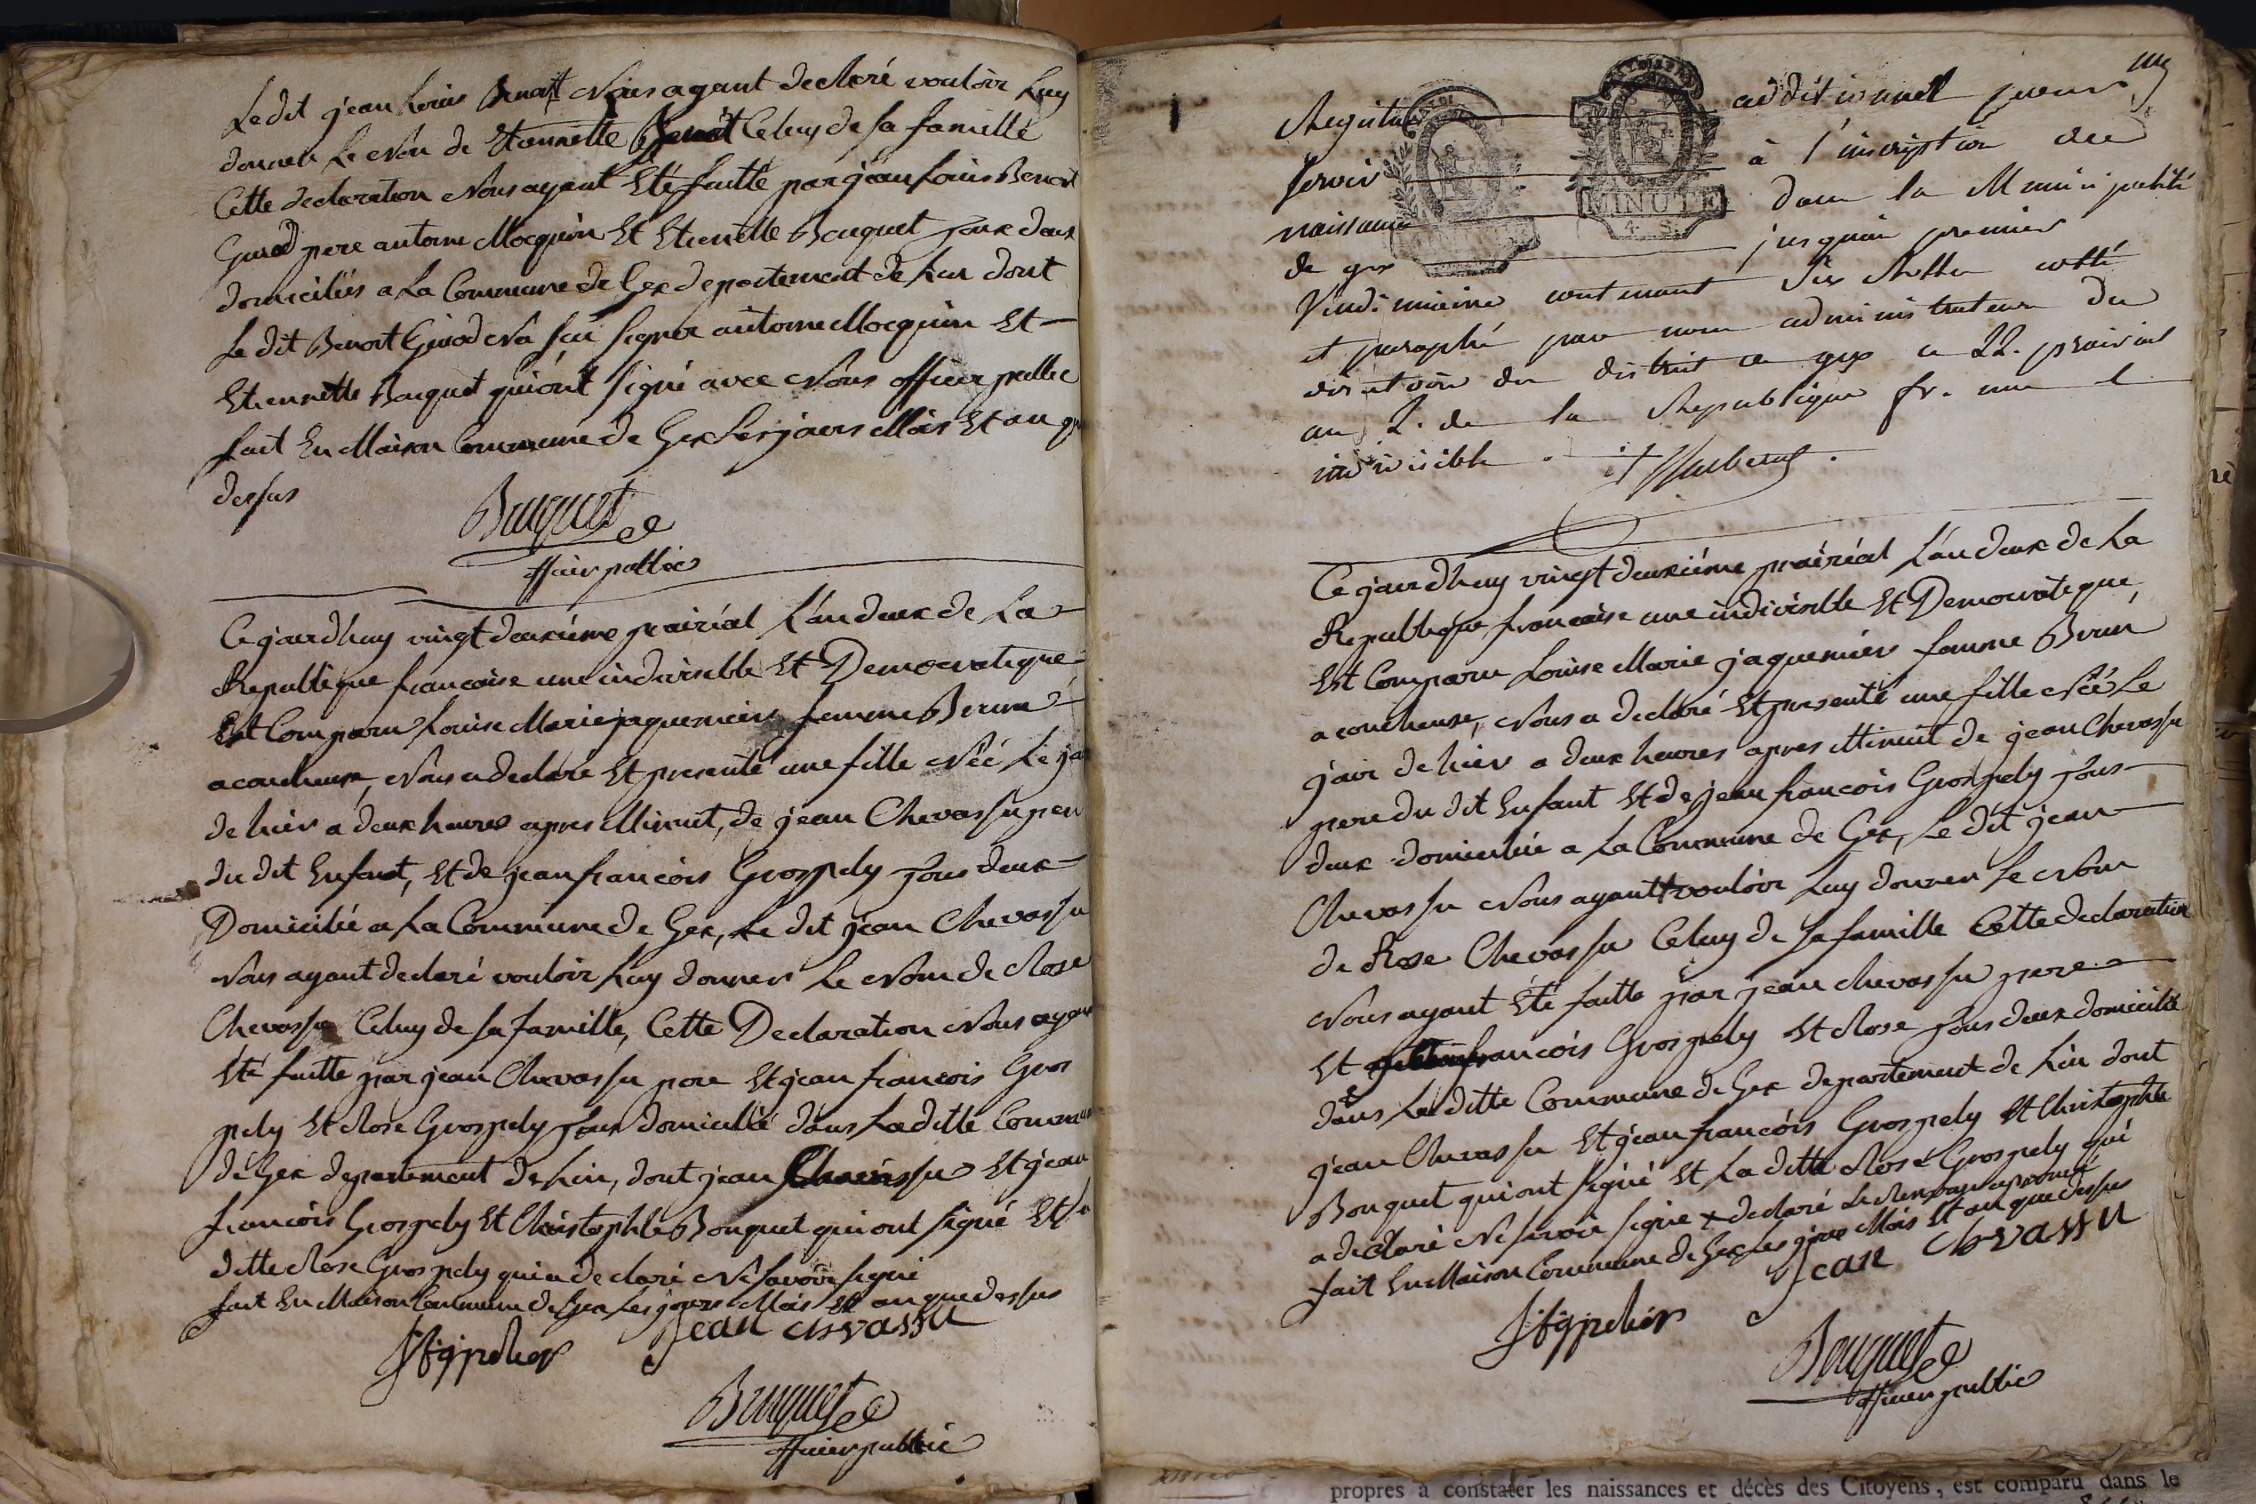 Le dit jean Louis Benoit Nous ayant declaré vouloir Luy
donner Le Nom de Etiennette Benoit Celuy de sa famille
Cette declaration Nous ayant Eté faitte par jean Louis Benoit
Girod pere antoine Mocquin Et Etiennette Bouquet tous deux
domiciliés a La Commune de Gex departement de Lin dont
Le dit Benoit Girod Na sçu signer antoine Mocquin Et
Etiennette Bouquet qui ont signé avec Nous officier public
fait En Maison Commune de Gex Les jours Mois Et an que
dessus
Bouquet
officier public
Ce jourdhuy vingt deuxiéme prairéal L'an deux de La
Republique francoise une indivisible Et Democratique
Est Comparu Louise Marie jaquemier femme Brun
acoucheuse, Nous a declaré Et presenté une fille Néé Le jour
de hier a deux heures apres Minuit, de jean Chevassu pere
du dit Enfant, Et de jean francois Grospely tous deux
Domicilié a La Commune de Gex, Le dit jean Chevassu
Nous ayant declaré vouloir Luy donner Le Nom de Rose
Chevassu Celuy de sa famille, Cette Declaration Nous ayant
Eté faitte par jean Chevassu pere Et jean francois Gros
pely Et Rose Grospely tous domicillié dans La ditte Commune
de Gex departement de Lin, dont jean Chevassu Et jean
francois Grospely Et Christophle Bouquet qui ont signé Et la
ditte Rose Grospely qui a declaré Ne savoir signé
fait En Maison Commune de Gex Les jours Mois Et an que dessus
jean chvassu
Bouquet
officier public
Registre additionnel pour
servir à l'inscription des
naissances dans la Municipalité
de gex jusqu'au premier
Vendimiaire contenant six feuillets cotté
et paraphé par nous administrateur du
directoire du district de gex ce 22. prairial
an 2. de la Republique fr. une et
indivisible.
MINUTE
4. S.
Ce jourdhuy vingt deuxiéme prairéal L'an deux de La
Republique francoise une indivisible Et Democratique,
Est Comparu Louise Marie jaquemier famme Brun
acoucheuse, Nous a declaré Et presenté une fille Néé Le
jour de hier a deux heures apres Minuit de jean Chevassu
pere du dit Enfant Et de jean francois Grospely tous
deux domicilié a La Commune de Gex, Le dit jean
Chevassu Nous ayant + vouloir Luy donner Le Nom
de Rose Chevassu Celuy de sa famille Cette declaration
Nous ayant Eté faitte par jean chevassu pere
Et francois Grospely Et Rose tous deux domicilié
dans La ditte Commune de Gex departement de Lin dont
jean Chevassu Et jean francois Grospely Et Christophle
Bouquet qui ont signé Et La ditte Rose Grospely qui
a declaré Ne savoir signé + declaré Le Renvoy aprouvé
fait En Maison Commune de Gex Les jour Mois Et an que dessus
jean chvassu
Bouquet
officier public
propres à constater les naissances et décès des Citoyens, est comparu dans le